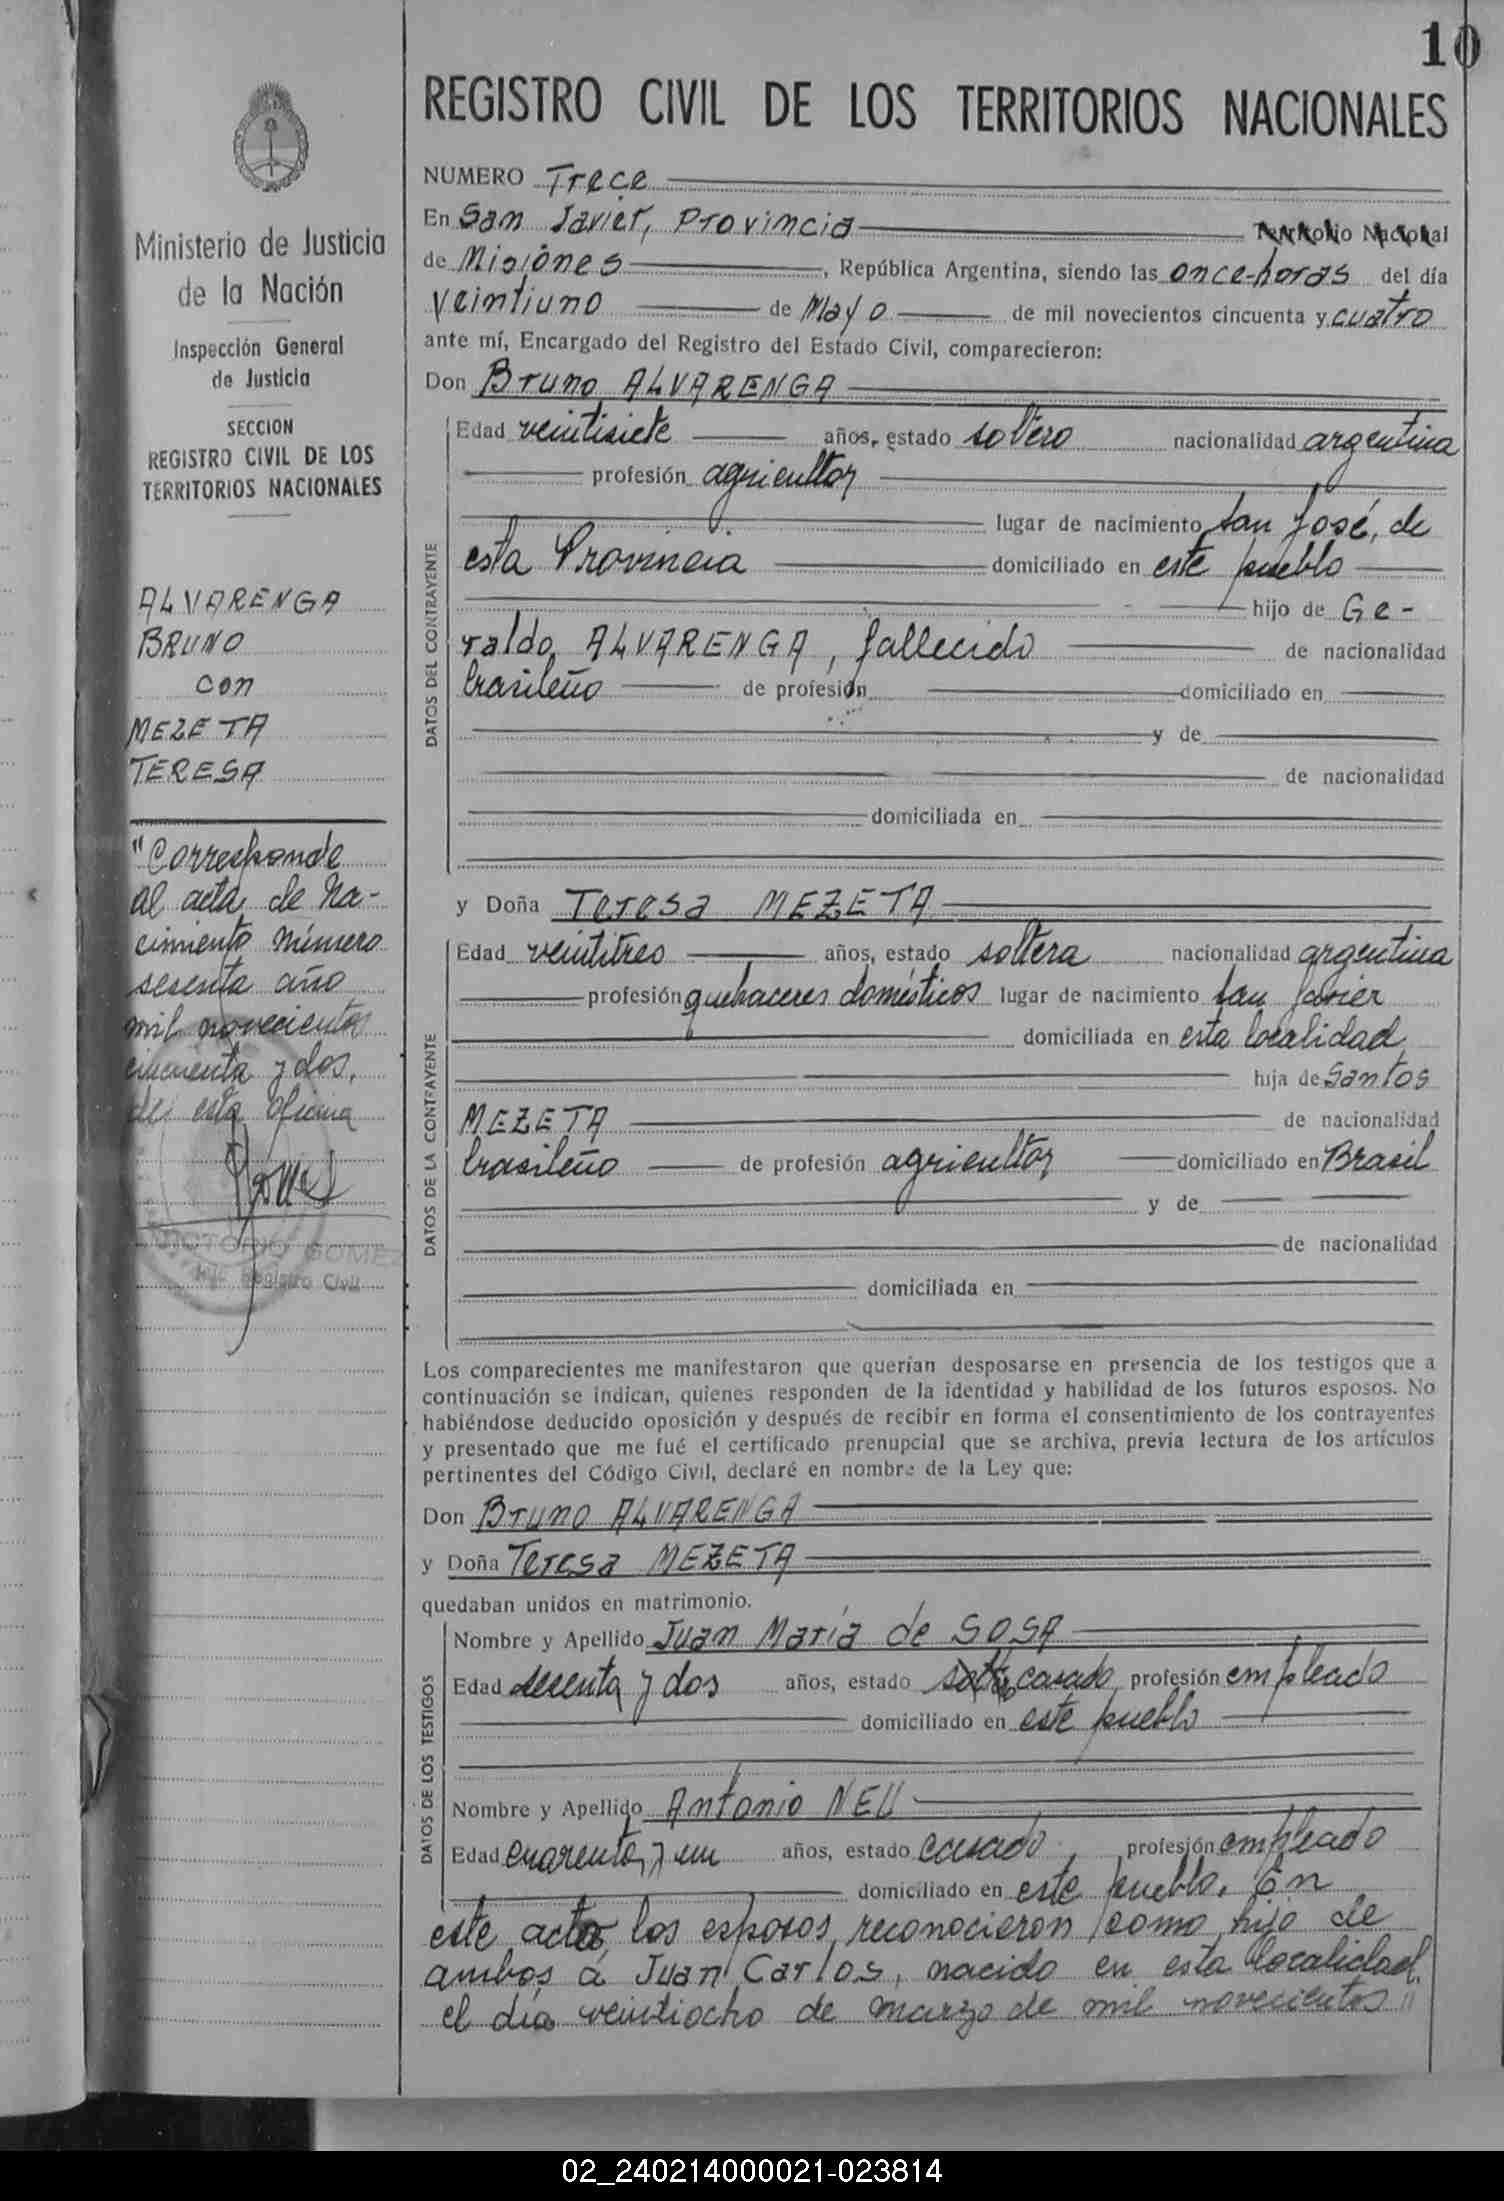 10
REGISTRO CIVIL DE LOS TERRITORIOS NACIONALES
Ministerio de Justicia
de la Nación
Inspección General
de Justicia
SECCION
REGISTRO CIVIL DE LOS
TERRITORIOS NACIONALES
ALVARENGA
BRUNO
con
MEZETA
TERESA
"Corresponde
al acta de Na-
cimiento número
sesenta año
mil novecientos
cincuenta y dos,
de esta oficina
VICTORIO GOMEZ
Registro Civil
NUMERO Trece
En San Javier, Provincia Territorio Nacional
de Misiones, República Argentina, siendo las once-horas del día
veintiuno de Mayo de mil novecientos cincuenta y cuatro
ante mí, Encargado del Registro del Estado Civil, comparecieron:
Don Bruno ALVARENGA
DATOS DEL CONTRAYENTE
Edad veintisiete años, estado soltero nacionalidad argentina
profesión agricultor
lugar de nacimiento San José, de
esta Provincia domiciliado en este pueblo
hijo de Ge-
raldo ALVARENGA, fallecido de nacionalidad
brasileño de profesión domiciliado en
y de
de nacionalidad
domiciliada en
y Doña Teresa MEZETA
DATOS DE LA CONTRAYENTE
Edad veintitres años, estado soltera nacionalidad argentina
profesión quehaceres domésticos lugar de nacimiento San Javier
domiciliada en esta localidad
hija de Santos
MEZETA de nacionalidad
brasileño de profesión agricultor domiciliado en Brasil
y de
de nacionalidad
domiciliada en
Los comparecientes me manifestaron que querían desposarse en presencia de los testigos que a
continuación se indican, quienes responden de la identidad y habilidad de los futuros esposos. No
habiéndose deducido oposición y después de recibir en forma el consentimiento de los contrayentes
y presentado que me fué el certificado prenupcial que se archiva, previa lectura de los artículos
pertinentes del Código Civil, declaré en nombre de la Ley que:
Don Bruno ALVARENGA
y Doña Teresa MEZETA
quedaban unidos en matrimonio.
DATOS DE LOS TESTIGOS
Nombre y Apellido Juan María de SOSA
Edad sesenta y dos años, estado casado profesión empleado
domiciliado en este pueblo
Nombre y Apellido Antonio NEU
Edad cuarenta y un años, estado casado, profesión empleado
domiciliado en este pueblo. En
este acto los esposos reconocieron como hijo de
ambos á Juan Carlos, nacido en esta localidad
el día veintiocho de marzo de mil novecientos"
02_240214000021-023814